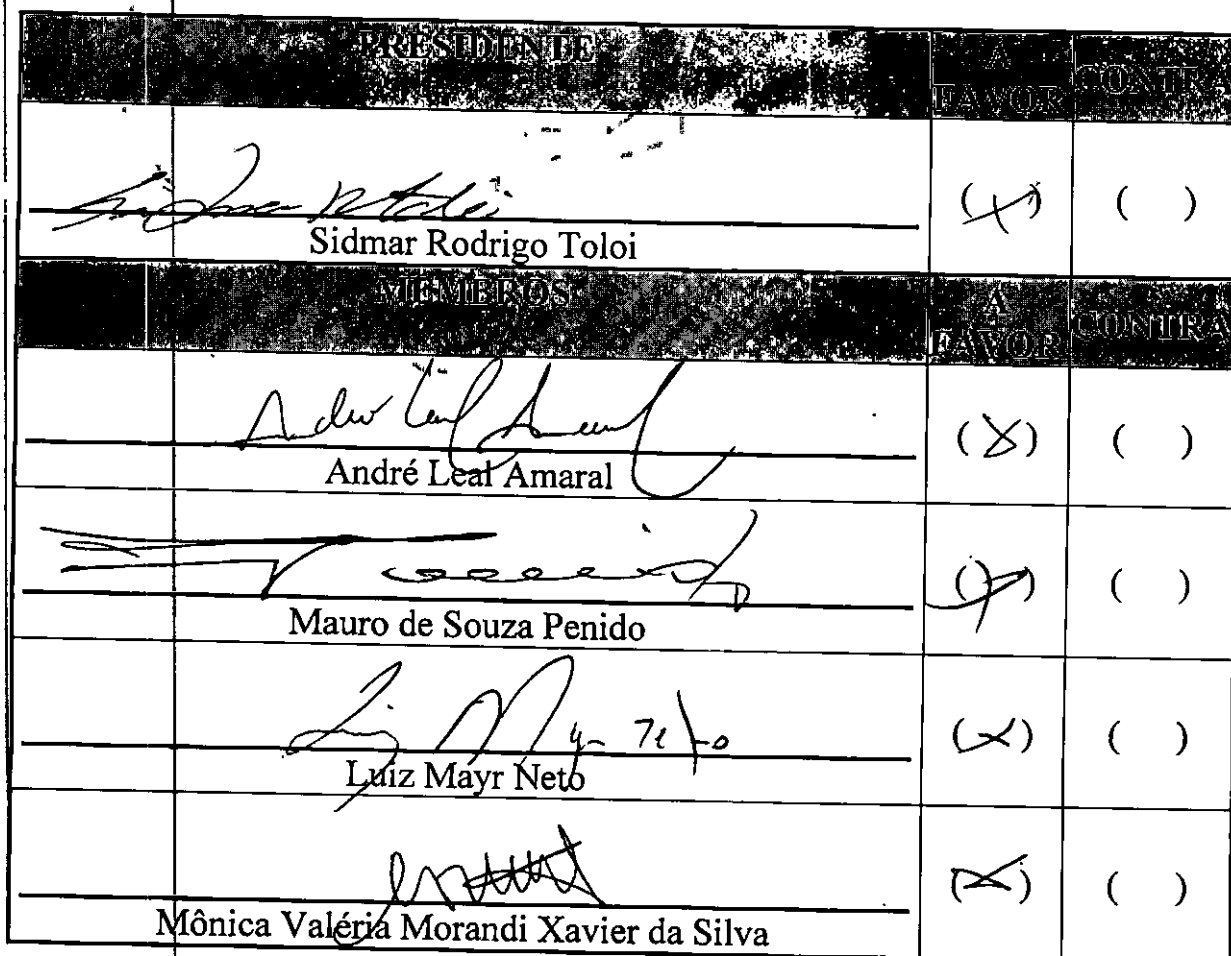 PRESIDENTE A FAVOR CONTRA
Sidmar Rodrigo Toloi (X) ( )
MEMBROS A FAVOR CONTRA
André Leal Amaral (X) ( )
Mauro de Souza Penido (X) ( )
Luiz Mayr Neto (X) ( )
Mônica Valéria Morandi Xavier da Silva (X) ( )